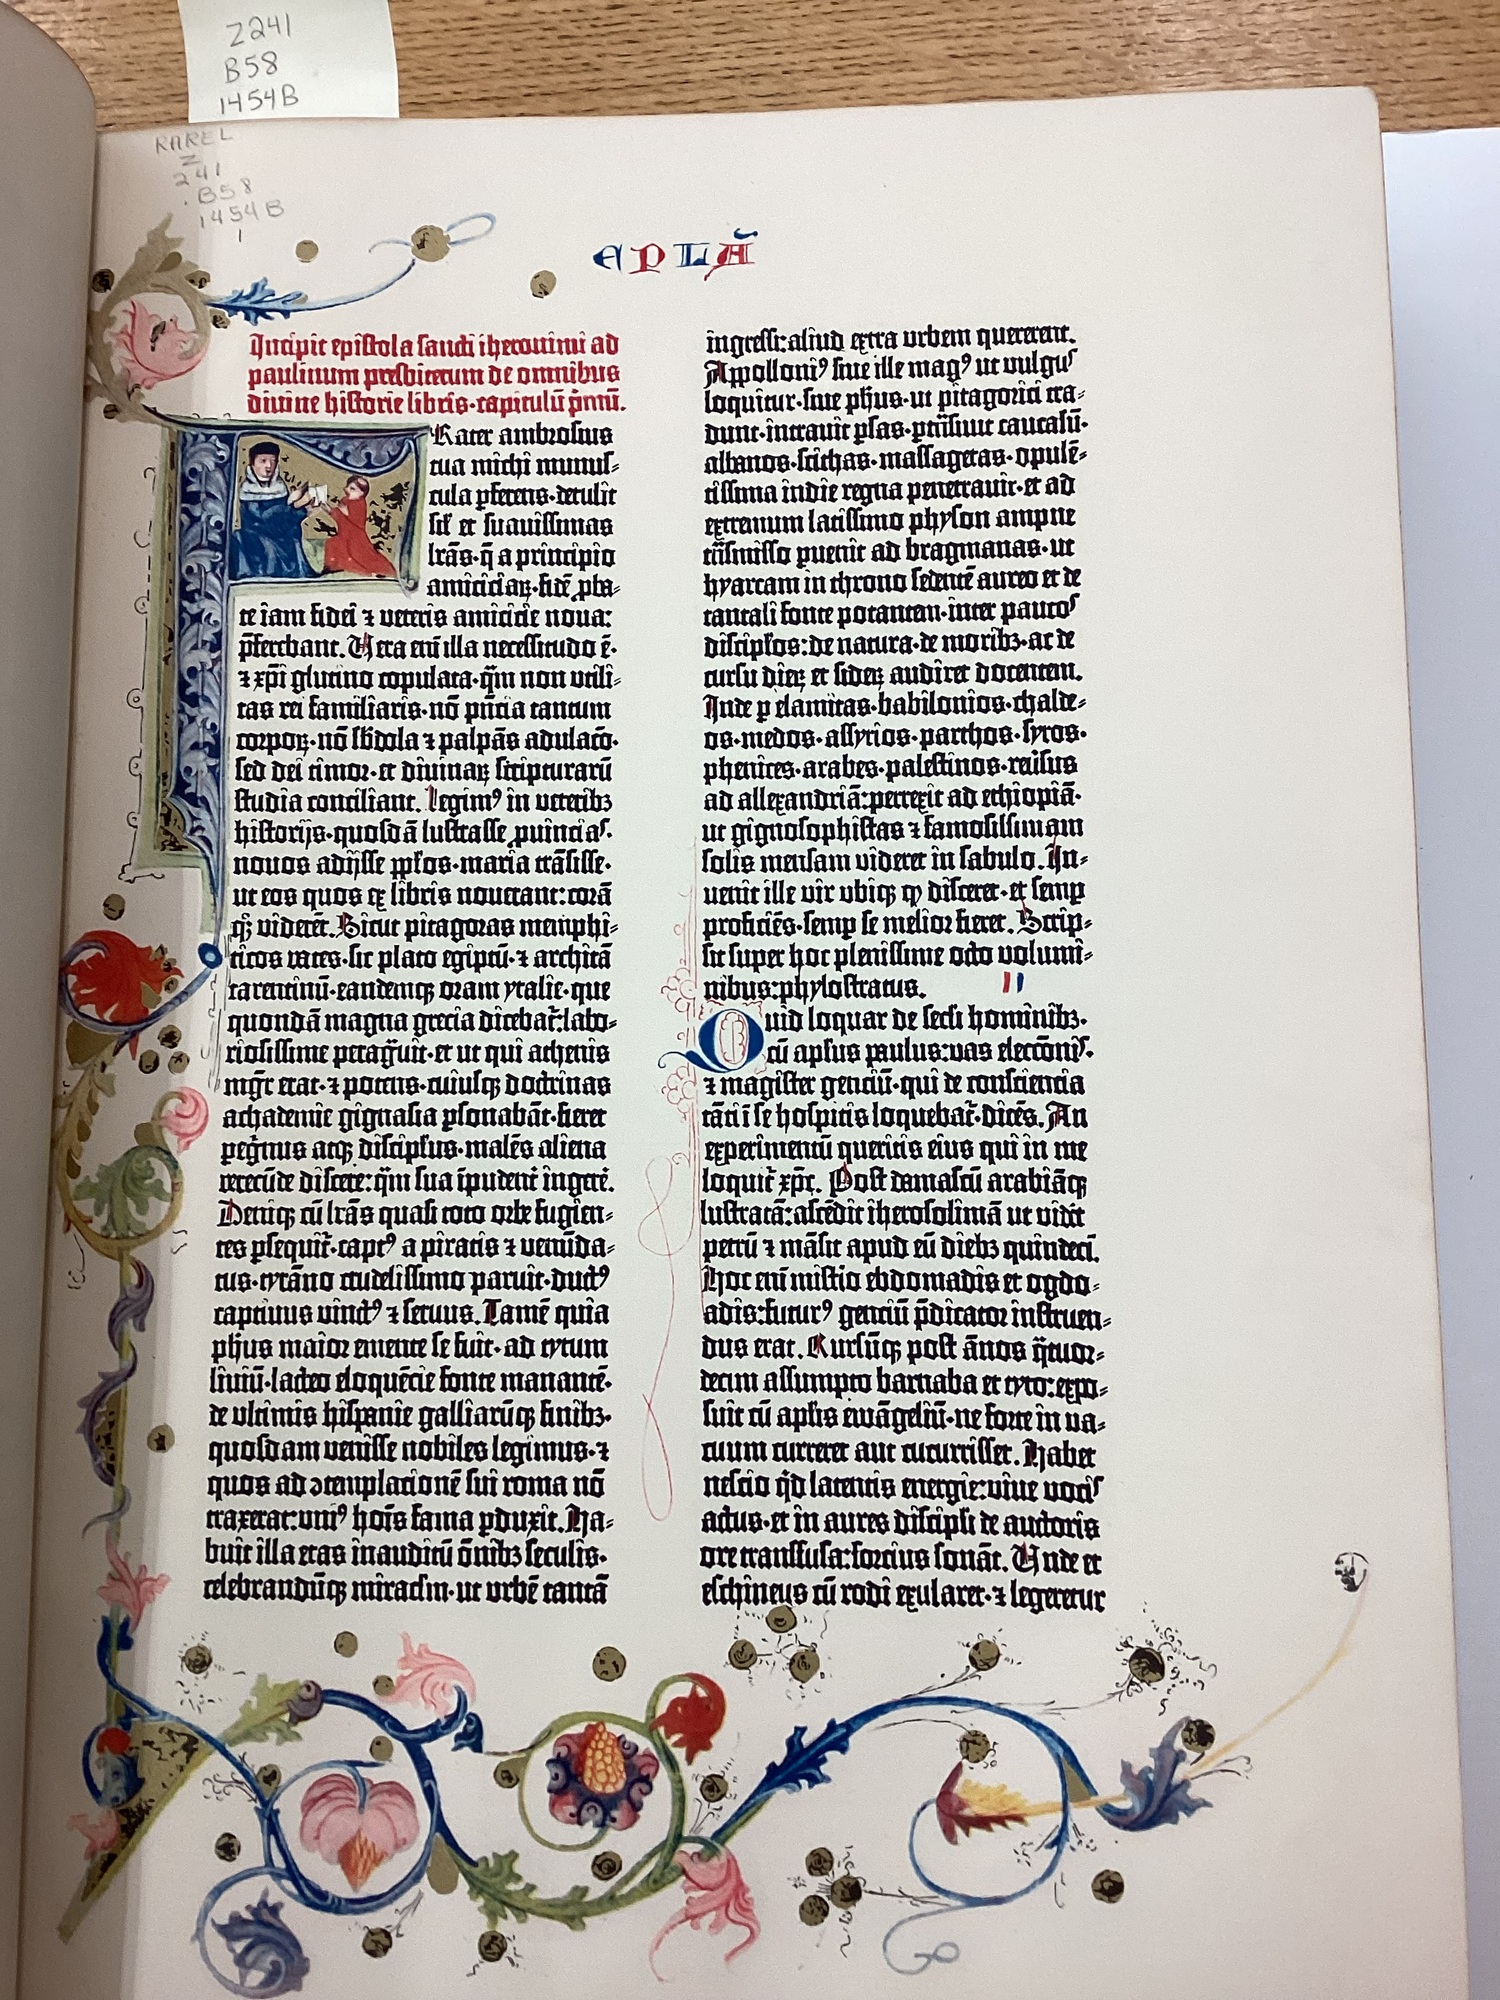 Z241
B58
1454B
RAREL
Z
241
.B58
1454B
1
EPLA̅
Incipit epistola sancti iheronimi ad
paulinum presbiterum de omnibus
divine historie libris·capitulū p̄mū.
Frater ambrosius
tua michi munus-
cula ꝑferens·detulit
sil' et suavissimas
lr̄as·q̄ a principio
amicicia⁊ꝝ·fidē ꝓba-
te iam fidei ⁊ veteris amicicie noua:
p̄ferebant. Uera eni illa necessitudo ē·
⁊ xp̄i glutino copulata·q̄m non utili-
tas rei familiaris·nō pn̄cia tantum
corpoꝝ·nō sb̄dola ⁊ palpās adulac̄o·
sed dei timor·et divinaꝝ scripturarū
studia conciliant. Legimꝰ in veteribꝫ
historijs·quosdā lustrasse ꝓuincias·
nouos adijsse pp̄los·maria trāsisse·
ut eos quos ex libris nouerant: corā
qꝫ viderēt. Sicut pitagoras memphi-
ticos vates·sic plato egiptū·⁊ architā
tarentinū·eandemqꝫ oram ytalie·que
quondā magna grecia dicebat̄: labo-
riosissime peragͣuit·et ut qui athenis
mgr̄ erat·⁊ potens·cuiusqꝫ doctrinas
achademie gignasia ꝑsonabāt·fieret
peg̃nus atqꝫ discipl̄us·malēs aliena
verecūde discere: q̄m sua īpudent̄ ingere̅.
Deniqꝫ cū lr̄as quasi toto orbe fugien-
tes ꝑsequit̄·captꝰ a piratis ⁊ venūda-
tus·tyrāno crudelissimo paruit·ductꝰ
captiuus vinctꝰ ⁊ seruus. Tamē quia
ph̄us maior emente se fuit·ad tytum
liuiū·lacteo eloquēcie fonte manantē·
de vltimis hispanie galliarūqꝫ finibꝫ·
quosdam venisse nobiles legimus·⁊
quos ad ꝯtemplacionē sui roma nō
traxerat: uniꝰ hoīs fama ꝑduxit. Ha-
buit illa etas inauditū ōnibꝫ seculis·
celebrandūqꝫ miraclm̄·ut urbē tantā
ingressi: aliud extra urbem quererent.
Appolloniꝰ siue ille magꝰ ut vulgus
loquitur·siue ph̄us·ut pitagorici tra-
dunt·intrauit ꝑsas·ꝑtn̄siuit caucasū·
albanos·scithas·massagetas·opulē-
tissima indie regna penetrauit·et ad
extremum latissimo physon ampne
trn̄smisso ꝑuenit ad bragmanas·ut
hyarcam in throno sedentē aureo et de
tantali fonte potantem·inter paucos
discipl̄os: de natura·de moribꝫ·ac de
cursu dieꝝ et sideꝝ audiret docentem.
Inde ꝑ elamitas·babilonios·chalde-
os·medos·assyrios·parthos·syros·
phenices·arabes·palestinos·reūsus
ad allexandriā: perrexit ad ethiopiā·
ut gignosophistas ⁊ famosissimam
solis mensam videret in sabulo. In-
uenit ille vir vbiqꝫ qͦ disceret·et semꝑ
proficiēs·semꝑ se melior fieret. Scrip-
sit super hoc plenissime octo volumi-
nibus: phylostratus. II
Quid loquar de secli hominibꝫ·
cū apl̄us paulus: vas eleccōnis·
⁊ magister genciū·qui de consciencia
tāti ī se hospitis loquebat̄·dicēs. An
experimentū queritis eius qui in me
loquit̄ xp̄c. Post damascū arabiāqꝫ
lustratā: ascēdit iherosolimā ut vidīt
petrū ⁊ māsit apud eū diebꝫ quindecī.
Hoc eni mistio ebdomadis et ogdo-
adis: futurꝰ genciū p̄dicator instruen-
dus erat. Rursūqꝫ post ānos q̄tuor-
decim assumpto barnaba et tyto: expo-
suit cū apl̄is ewāgeliū·ne forte in va-
cuum curreret aut cucurrisset. Habet
nescio qͥd latentis energie: viue vocis
actus·et in aures discipl̄i de auctoris
ore transfusa: forcius sonāt. Unde et
eschineus cū rodi exularet·⁊ legeretur